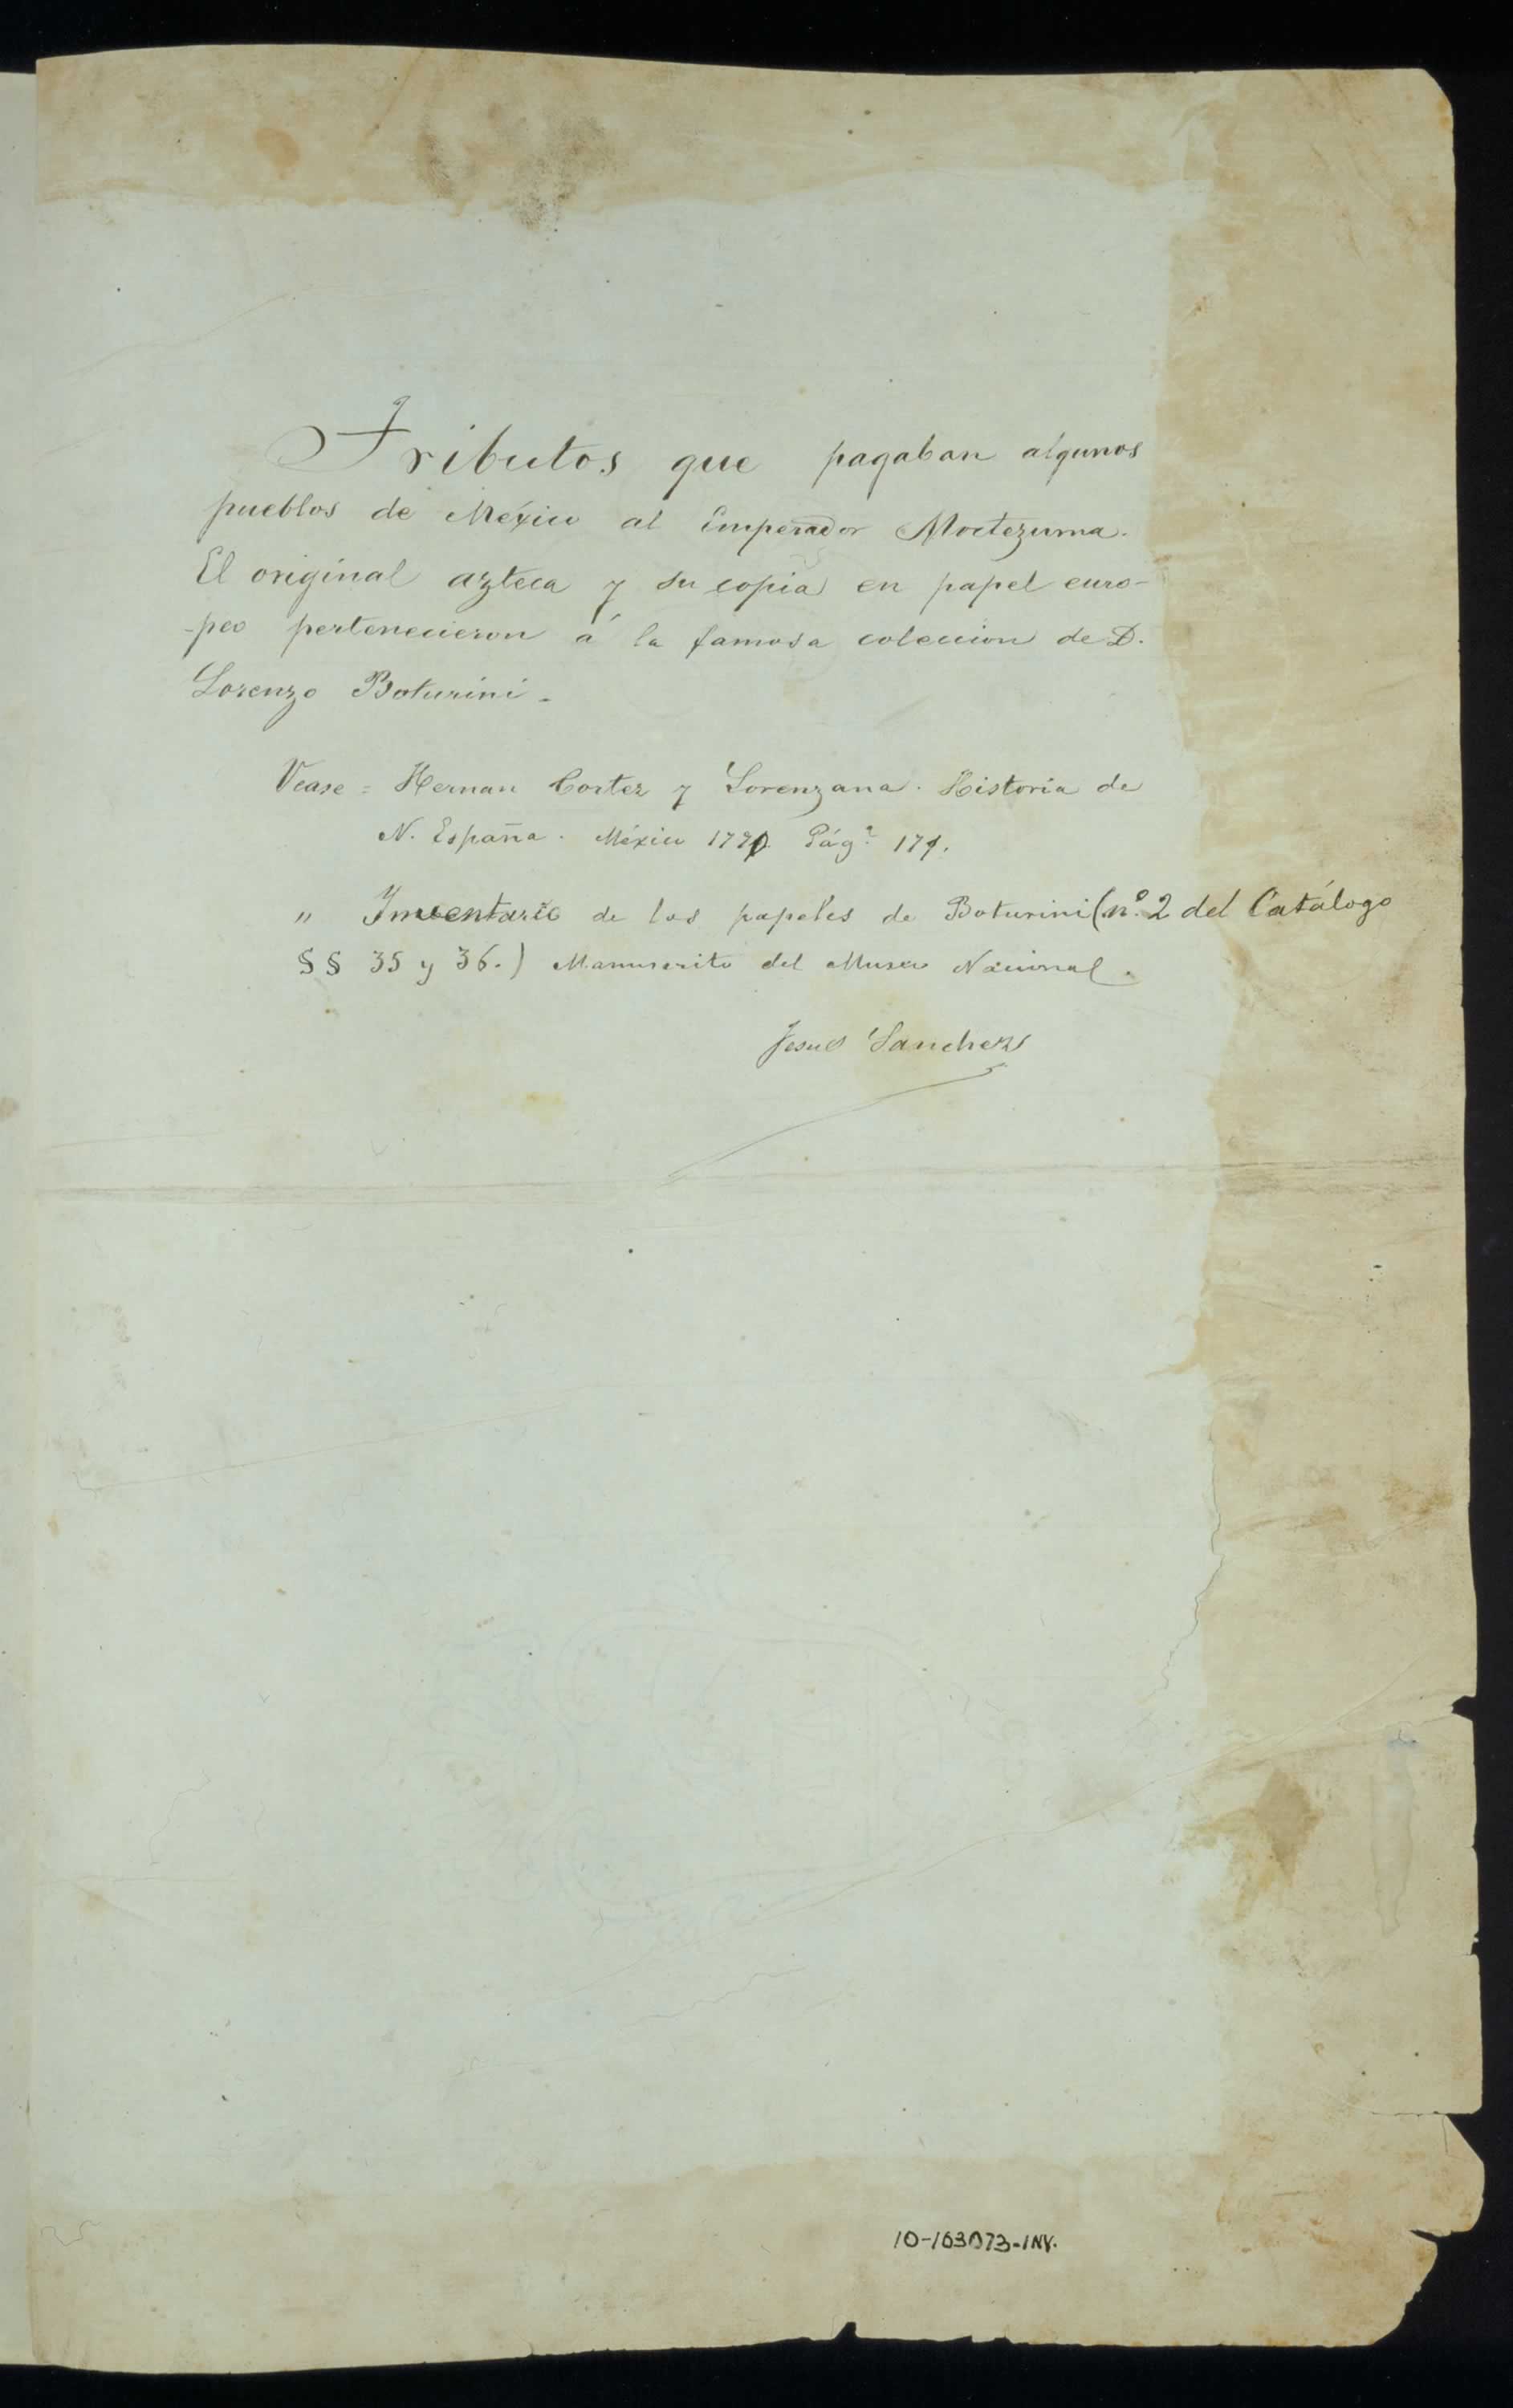 Tributos que pagaban algunos
pueblos de México al Emperador Moctezuma.
El original azteca y su copia en papel euro-
-peo pertenecieron á la famosa coleccion de D.
Lorenzo Boturini.
Vease = Hernan Cortez y Lorenzana. Historia de
N. España. México 1770. Pág.ª 171.
" Inventario de los papeles de Boturini (nº. 2 del Catálogo
§§ 35 y 36.) Manuscrito del Museo Nacional.
Jesus Sanchez
10-163073-INV.